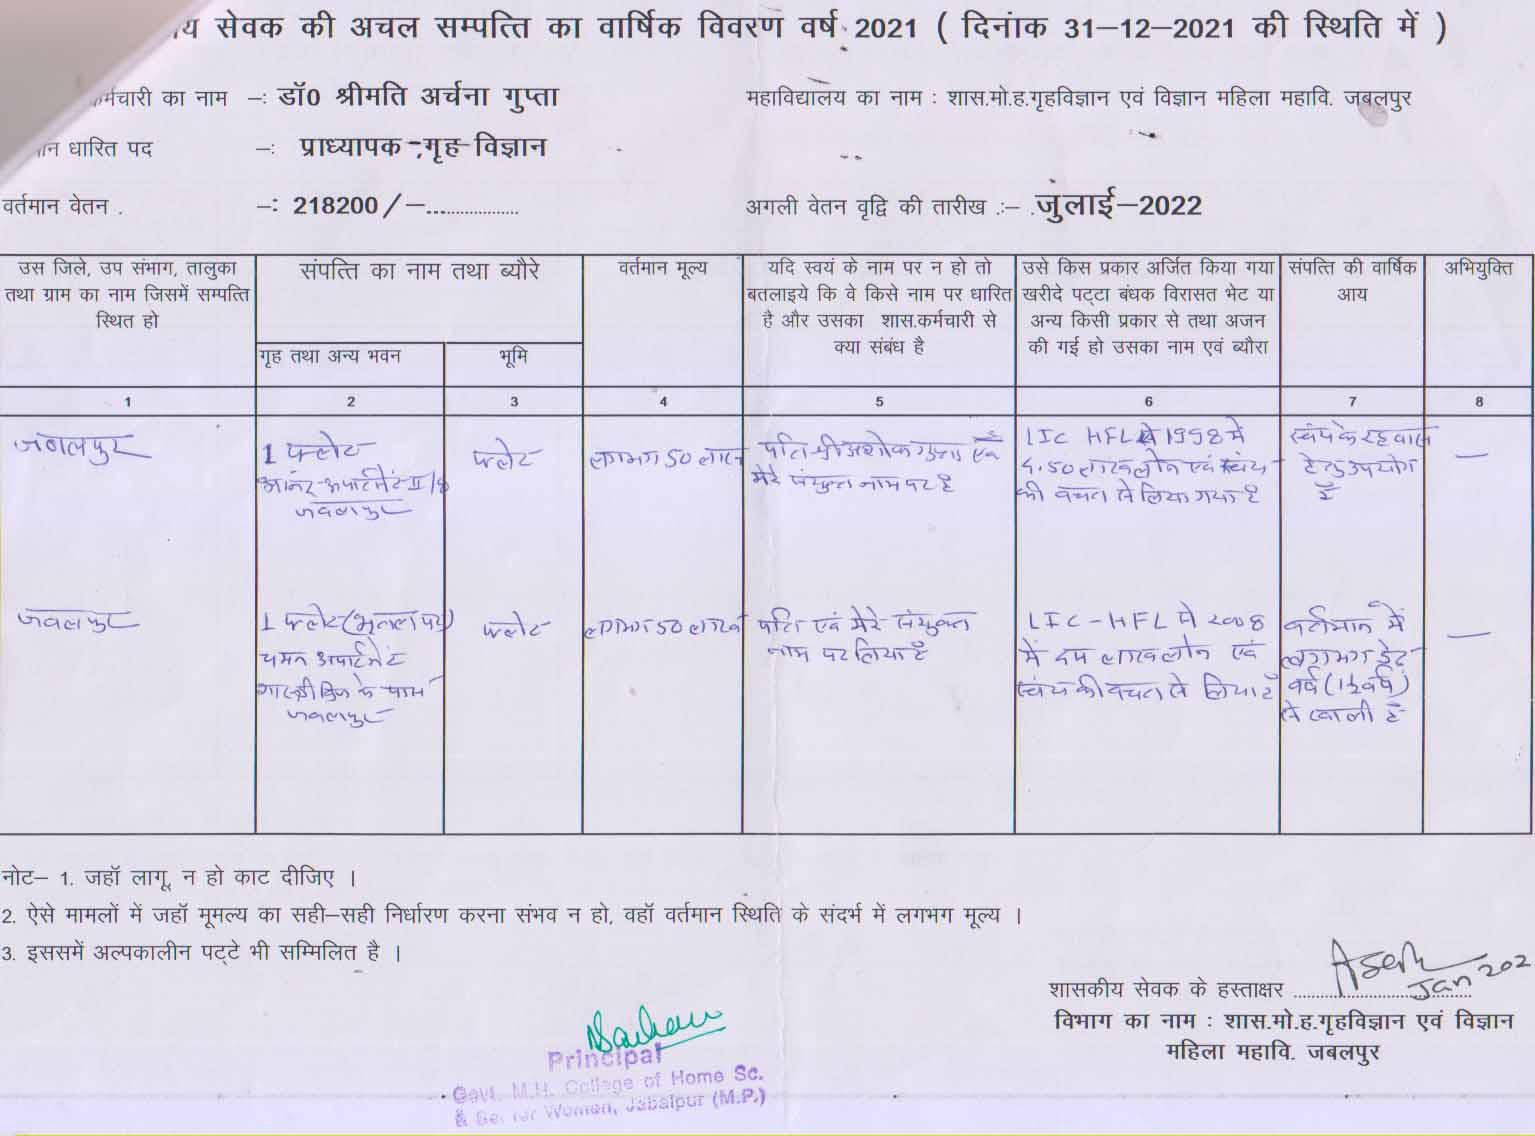 सेवक की अचल सम्पत्ति का वार्षिक विवरण वर्ष 2021 ( दिनांक 31–12–2021 की स्थिति में )
र्मचारी का नाम –: डॉ0 श्रीमति अर्चना गुप्ता
महाविद्यालय का नाम : शास.मो.ह.गृहविज्ञान एवं विज्ञान महिला महावि. जबलपुर
धारित पद –: प्राध्यापक –गृह–विज्ञान
वर्तमान वेतन . –: 218200 / –...................
अगली वेतन वृद्वि की तारीख .:– .जुलाई–2022
उस जिले, उप संभाग, तालुका
तथा ग्राम का नाम जिसमें सम्पत्ति
स्थित हो
संपत्ति का नाम तथा ब्यौरे
गृह तथा अन्य भवन
भूमि
वर्तमान मूल्य
यदि स्वयं के नाम पर न हो तो
बतलाइये कि वे किसे नाम पर धारित
है और उसका शास.कर्मचारी से
क्या संबंध है
उसे किस प्रकार अर्जित किया गया
खरीदे पट्टा बंधक विरासत भेट या
अन्य किसी प्रकार से तथा अजन
की गई हो उसका नाम एवं ब्यौरा
संपत्ति की वार्षिक
आय
अभियुक्ति
1 2 3 4 5 6 7 8
जबलपुर
1 फ्लेट
अपार्टमेंट II/8
जबलपुर
फ्लेट
लगभग 50 लाख
पति श्री अशोक गुप्ता एवं
मेरे संयुक्त नाम पर है
LIC HFL से 1998 में
4.50 लाख लोन एवं स्वंय
की बचत से लिया गया है
स्वंय के रहवास
हेतु उपयोग
है
—
जबलपुर
1 फ्लेट (भूतल पर)
चमन अपार्टमेंट
के पास
जबलपुर
फ्लेट
लगभग 50 लाख
पति एवं मेरे संयुक्त
नाम पर लिया है
LIC-HFL से 2008
में दस लाख लोन एवं
स्वंय की बचत से लिया है
वर्तमान में
लगभग डेढ़
वर्ष (1½ वर्ष)
से खाली है
—
नोट– 1. जहॉ लागू, न हो काट दीजिए ।
2. ऐसे मामलों में जहॉ मूमल्य का सही–सही निर्धारण करना संभव न हो, वहॉ वर्तमान स्थिति के संदर्भ में लगभग मूल्य ।
3. इससमें अल्पकालीन पट्टे भी सम्मिलित है ।
शासकीय सेवक के हस्ताक्षर ..............................
Jan 202
विभाग का नाम : शास.मो.ह.गृहविज्ञान एवं विज्ञान
महिला महावि. जबलपुर
Principal
Govt. M.H. College of Home Sc.
& Sc. for Women, Jabalpur (M.P.)